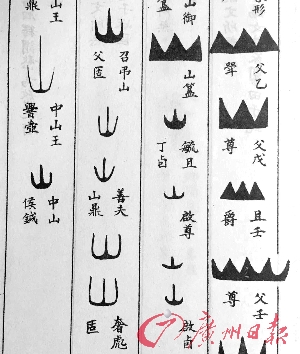 形
父乙
父戊
尊
且壬
爵
父壬
尊
山御
簋
山簋
毓且
丁卣
啟尊
啟卣
召弔山
父
善夫
山鼎
奢彪
山王
鼎
中山王
壺
中山
侯鉞
廣州日報